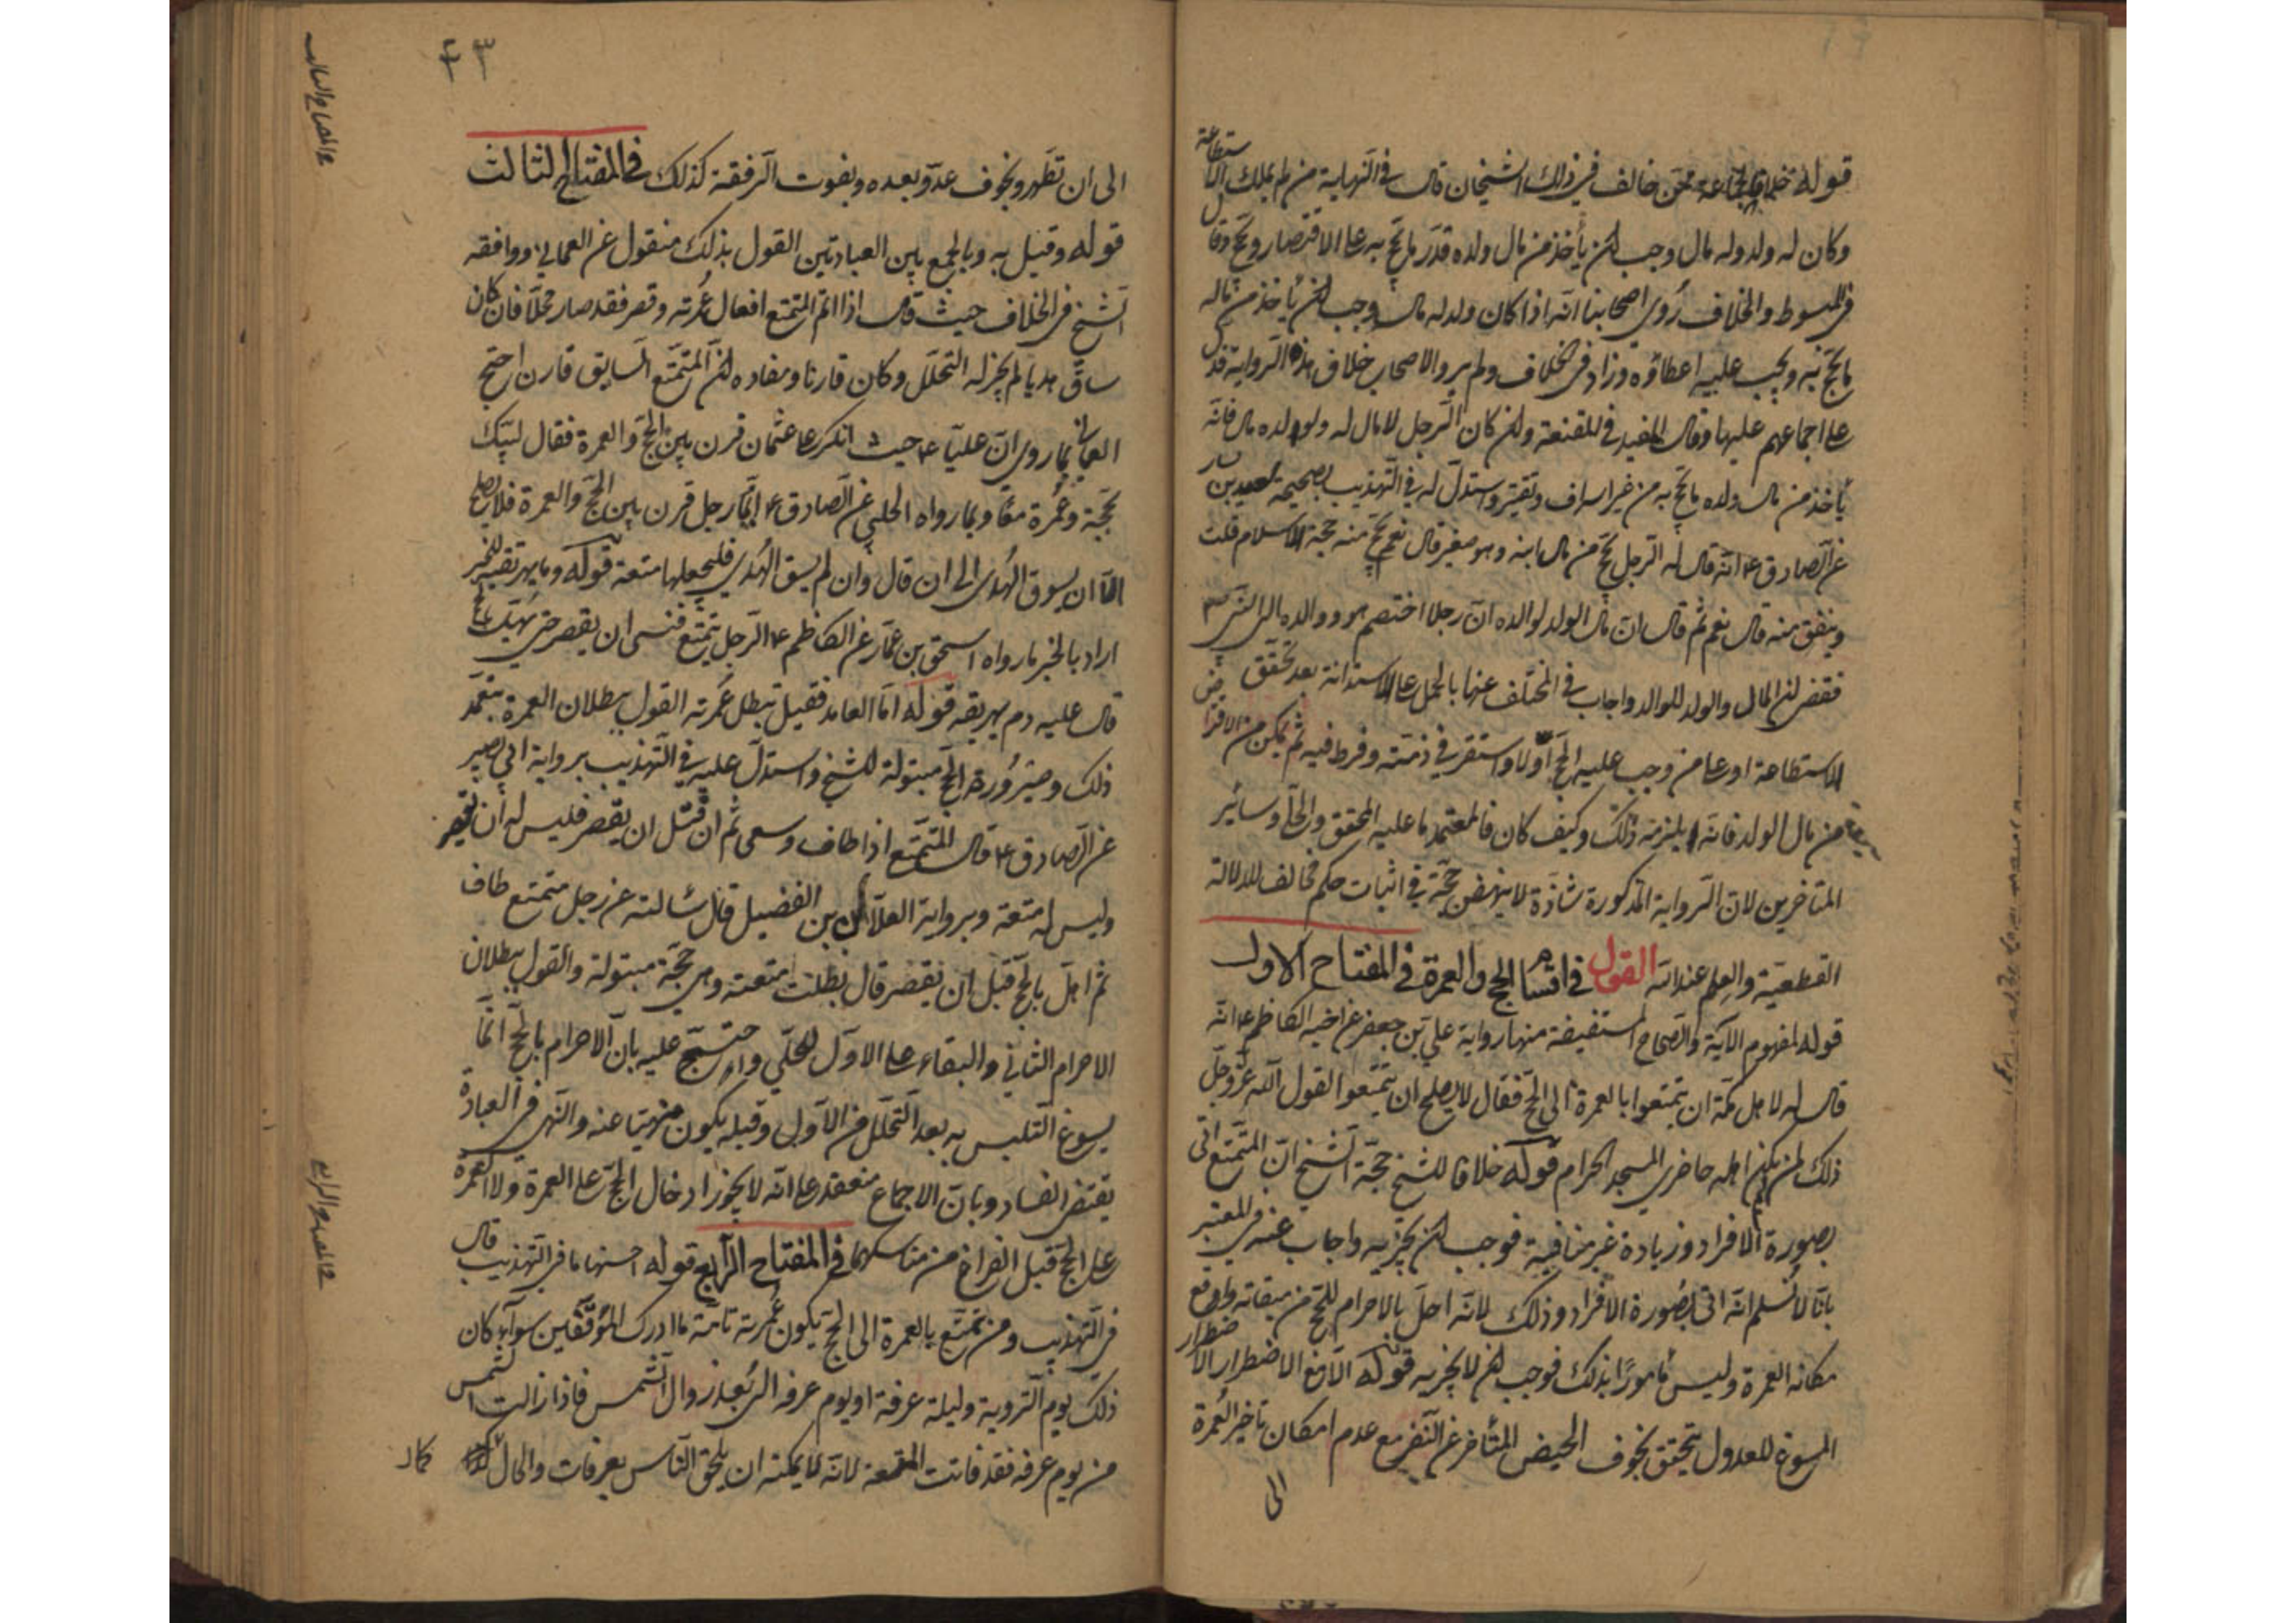 قوله خلافا لجماعة ممن خالف في ذلك الشيخان قال في النهاية من لم يملك الاستطاعة
وكان له ولد وله مال وجب ان يأخذ من مال ولده قدر ما يحج به على الاقتصار ويحج وقال
في المبسوط والخلاف روى اصحابنا انه اذا كان ولد له مال وجب ان يأخذ من ماله
ما يحج به ويجب عليه اعطاؤه وزاد في الخلاف ولم يرو الاصحاب خلاف هذه الرواية فدل
على اجماعهم عليها وقال المفيد في المقنعة وان كان الرجل لا مال له ولولده مال فانه
يأخذ من مال ولده ما يحج به من غير اسراف وتقتير واستدل له في التهذيب بصحيحة سعيد بن يسار
عن الصادق ع انه قال له الرجل يحج من مال ابنه وهو صغير قال نعم يحج منه حجة الاسلام قلت
وينفق منه قال نعم ثم قال ان مال الولد لوالده ان رجلا اختصم هو ووالده الى النبي ص
فقضى ان المال والولد للوالد واجاب في المختلف عنها بالحمل على الاستدانة بعد تحقق
الاستطاعة او على من وجب عليه الحج اولا واستقر في ذمته وفرط فيه ثم تمكن من الاقتراض
من مال الولد فانه يلزمه ذلك وكيف كان فالمعتمد ما عليه المحقق والحلي وسائر
المتأخرين لان الرواية المذكورة شاذة لا ينهض حجة في اثبات حكم مخالف للدلالة
القطعية والعلم عند الله القول في اقسام الحج والعمرة في المفتاح الاول
قوله لمفهوم الآية والصحاح المستفيضة منها رواية علي بن جعفر عن اخيه الكاظم ع انه
قال له لاهل مكة ان يتمتعوا بالعمرة الى الحج فقال لا يصلح ان يتمتعوا لقول الله عز وجل
ذلك لمن لم يكن اهله حاضري المسجد الحرام قوله خلافا للشيخ حجة الشيخ ان المتمتع اتى
بصورة الافراد وزيادة غير منافية فوجب ان يجزيه واجاب عنه في المعتبر
بانا لا نسلم انه اتى بصورة الافراد وذلك لانه اخل بالاحرام للحج من ميقاته واوقع
مكانه العمرة وليس مأمورا بذلك فوجب ان لا يجزيه قوله الا مع الاضطرار الاضطرار
المسوغ للعدول يتحقق بخوف الحيض المتأخر عن النفر مع عدم امكان تأخير العمرة
الى
٤٣
الى ان تطهر وبخوف عدو بعده وبفوت الرفقة كذلك في المفتاح الثالث
قوله وقيل به وبالجمع بين العبادتين القول بذلك منقول عن العماني ووافقه
الشيخ في الخلاف حيث قال اذا اتم المتمتع افعال عمرته وقصر فقد صار محلا فان كان
ساق هديا لم يجز له التحلل وكان قارنا ومفاده ان المتمتع السايق قارن احتج
العماني بما روي ان عليا ع حيث انكر على عثمان قرن بين الحج والعمرة فقال لبيك
بحجة وعمرة معا وبما رواه الحلبي عن الصادق ع ايما رجل قرن بين الحج والعمرة فلا يصلح
الا ان يسوق الهدي الى ان قال وان لم يسق الهدي فليجعلها متعة قوله وما يهريقه للخبر
اراد بالخبر ما رواه اسحق بن عمار عن الكاظم ع الرجل يتمتع فنسي ان يقصر حتى يهل بالحج
قال عليه دم يهريقه قوله اما العامد فقيل تبطل عمرته القول ببطلان العمرة بتعمد
ذلك وصيرورة الحج مبتولة للشيخ واستدل عليه في التهذيب برواية ابي بصير
عن الصادق ع قال المتمتع اذا طاف وسعى ثم ان قبل ان يقصر فليس له ان يقصر
وليس له متعة وبرواية العلا بن الفضيل قال سالته عن رجل متمتع طاف
ثم اهل بالحج قبل ان يقصر قال بطلت متعته وهي حجة مبتولة والقول ببطلان
الاحرام الثاني والبقاء على الاول للحلي واحتج عليه بان الاحرام بالحج انما
يسوغ التلبس به بعد التحلل من الاول وقبله يكون منهيا عنه والنهي في العبادة
يقتضي الفساد وبان الاجماع منعقد على انه لا يجوز ادخال الحج على العمرة ولا العمرة
على الحج قبل الفراغ من مناسكهما في المفتاح الرابع قوله احسنها ما في التهذيب قال
في التهذيب ومن تمتع بالعمرة الى الحج يكون عمرته تامة ما ادرك الموقفين سواء كان
ذلك يوم التروية وليلة عرفة او يوم عرفه الى بعد زوال الشمس فاذا زالت الشمس
من يوم عرفه فقد فاتت المتعة لانه لا يمكنه ان يلحق الناس بعرفات والحال